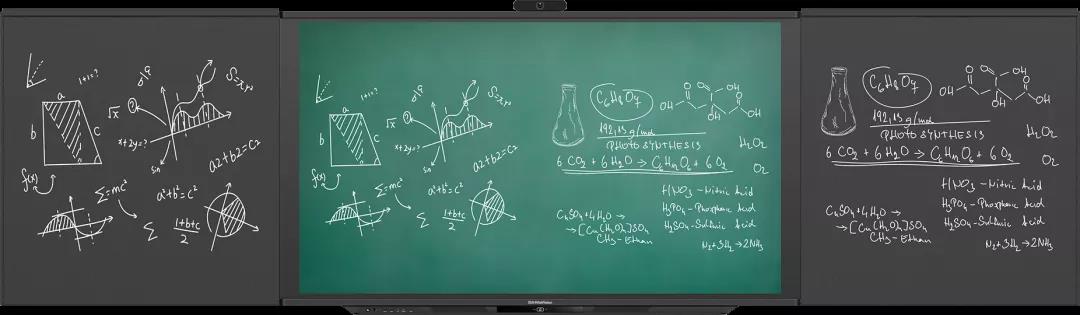 1+1=?
a
b
c
√x
S=x,y
x+2y=?
sin
f(x)
a2+b2=c2
Σ=mc²
a²+b²=c²
Σ 1+b+c
2
1+1=?
a
b
c
√x
S=x,y
x+2y=?
sin
f(x)
a2+b2=c2
Σ=mc²
a²+b²=c²
Σ 1+b+c
2
C6H8O7
O O OH O
OH OH OH
192,13 g/mol
PHOTOSYNTHESIS
H2O2
6 CO2 + 6 H2O → C6H12O6 + 6 O2
O2
HNO3 - Nitric Acid
H3PO4 - Phosphoric Acid
H2SO4 - Sulfuric Acid
CuSO4 + 4H2O →
→ [Cu(H2O)4]SO4
CH3 - Ethan
N2 + 3H2 → 2NH3
C6H8O7
O O OH O
OH OH OH
192,13 g/mol
PHOTOSYNTHESIS
H2O2
6 CO2 + 6 H2O → C6H12O6 + 6 O2
O2
HNO3 - Nitric Acid
H3PO4 - Phosphoric Acid
H2SO4 - Sulfuric Acid
CuSO4 + 4H2O →
→ [Cu(H2O)4]SO4
CH3 - Ethan
N2 + 3H2 → 2NH3